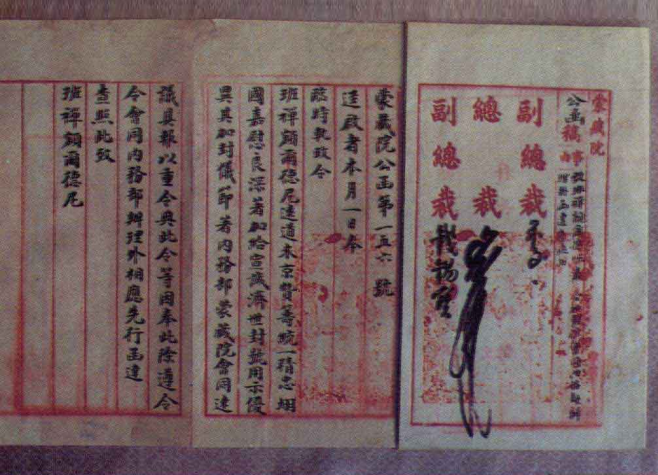 蒙藏院
公函稿
事由
副總裁
總裁
副總裁
蒙藏院公函第一五六號
逕啟者本月一日奉
臨時執政令
班禪額爾德尼遠道來京贊籌統一精忠翊
國嘉慰良深著加給宣誠濟世封號用示優
異其加封儀節著內務部蒙藏院會同達
議具報以重令典此令等因奉此除遵令
令會同內務部辦理外相應先行函達
查照此致
班禪額爾德尼